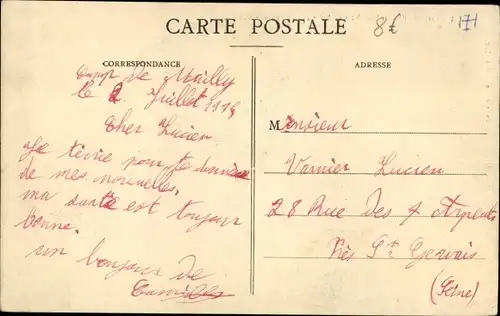 CARTE POSTALE
8€
CORRESPONDANCE
ADRESSE
Camp De Mailly
le 2 Juillet
Cher Lucien
Je técrie pour te donnér
de mes nouvelles.
ma santé est toujour
bonne.
un bonjour de
Camille
Monsieur
Varnier Lucien
28 Rue Des 7 Arpents
Près St Gervais
(Seine)